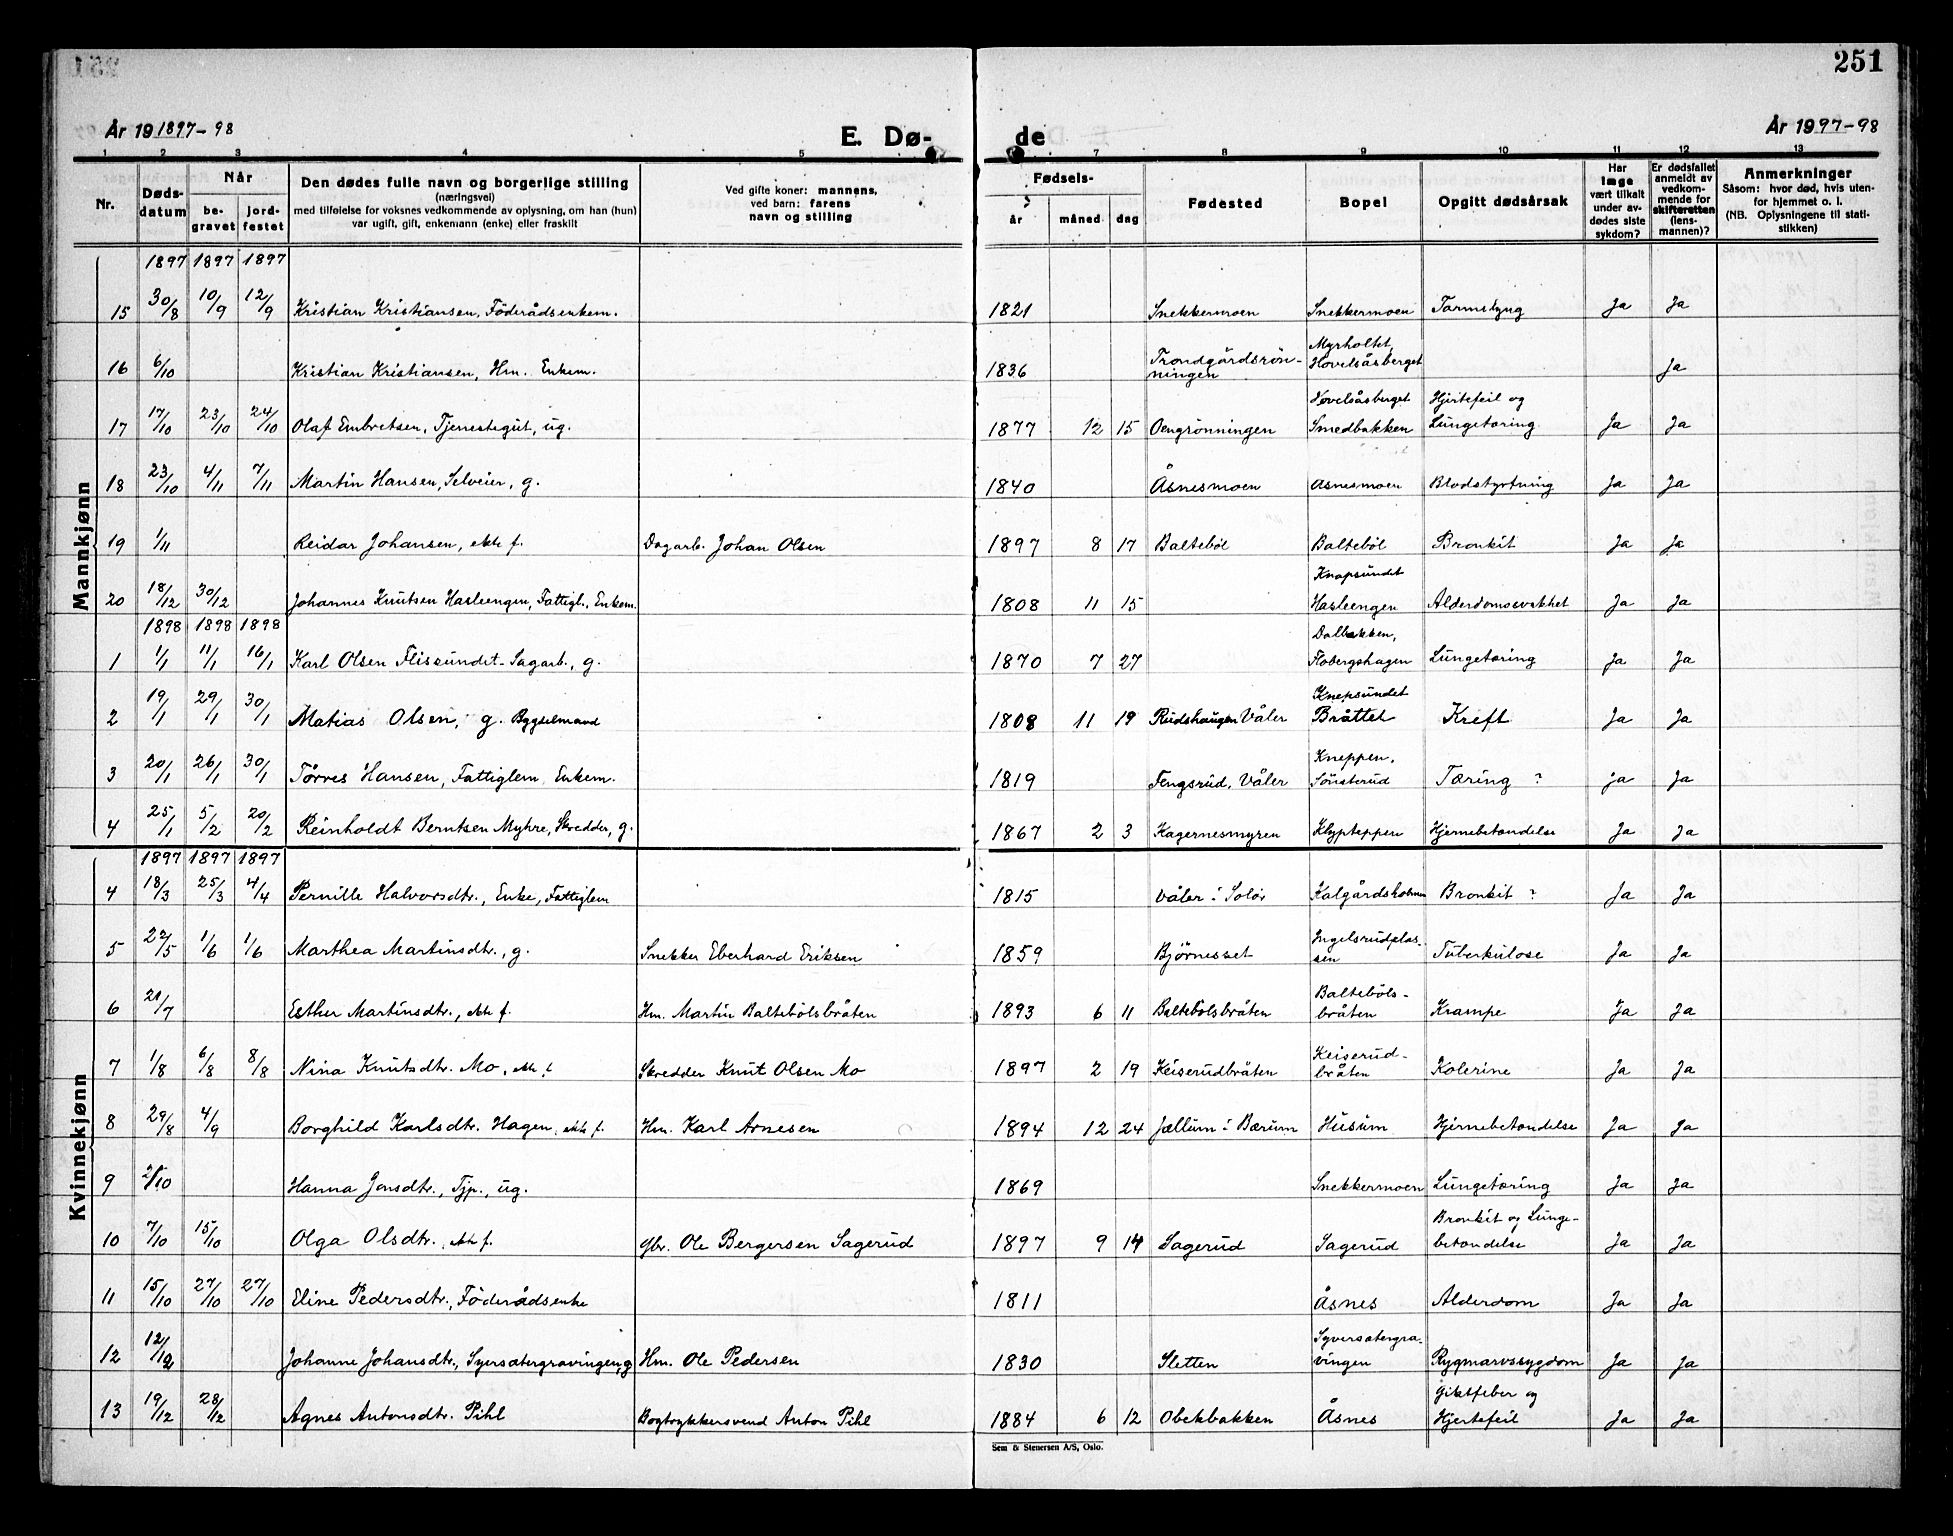 251
År 19 1897-98
E. Dø-
de
År 1997-98
1 2 3 4 5 7 8 9 10 11 12 13
Nr.
Døds-
datum
Når
be-
gravet
jord-
festet
Den dødes fulle navn og borgerlige stilling
(næringsvei)
med tilføielse for voksnes vedkommende av oplysning, om han (hun)
var ugift, gift, enkemann (enke) eller fraskilt
Ved gifte koner: mannens,
ved barn: farens
navn og stilling
Fødsels-
år
måned
dag
Fødested
Bopel
Opgitt dødsårsak
Har
læge
vært tilkalt
under av-
dødes siste
sykdom?
Er dødsfallet
anmeldt av
vedkom-
mende for
skifteretten
(lens-
mannen)?
Anmerkninger
Såsom: hvor død, hvis uten-
for hjemmet o. l.
(NB. Oplysningene til stati-
stikken)
Mannkjønn
1897 1897 1897
15 30/8 10/9 12/9 Kristian Kristiansen, Föderådsenkem. 1821 Snekkermoen Snekkermoen Tarmslyng Ja Ja
Myrholtet,
16 6/10 Kristian Kristiansen, Hm. Enkem. 1836 Trondgårdsrön-
ningen Hovelsåsberget Ja
Hovelsåsberget Hjertefeil og
17 17/10 23/10 24/10 Olaf Embretsen, Tjenestegut, ug. 1877 12 15 Oengrönningen Smedbakken Lungetæring Ja Ja
18 23/10 4/11 7/11 Martin Hansen, Selveier, g. 1840 Åsnesmoen Åsnesmoen Blodstyrtning Ja Ja
19 1/11 Reidar Johansen, ekte f. Dagarb. Johan Olsen 1897 8 17 Baltebøl Baltebøl Bronkit Ja Ja
Knapsundet
20 18/12 30/12 Johannes Knutsen Hasleengen, Fattigl., Enkem. 1808 11 15 Hasleengen Alderdomssvakhet Ja Ja
1898 1898 1898
Dalbakken,
1 1/1 11/1 16/1 Karl Olsen Flissundet Sagarb., g. 1870 7 27 Flobergshagen Lungetæring Ja Ja
Knepsundet
2 19/1 29/1 30/1 Matias Olsen, g. Bygselmand 1808 11 19 Rudshaugen Våler Bråttet Kreft Ja Ja
Kneppen,
3 20/1 26/1 30/1 Törres Hansen, Fattiglem, Enkem. 1819 Fengsrud, Våler Sönsterud Tæring ? Ja Ja
4 25/1 5/2 20/2 Reinholdt Berntsen Myhre, Skredder, g. 1867 2 3 Kagernesmyren Klypteppen Hjernebetændelse Ja Ja
Kvinnekjønn
1897 1897 1897
4 18/3 25/3 4/4 Pernille Halvorsdtr., Enke, Fattiglem 1815 Våler i Solör Kalgårdsholmen Bronkit ? Ja Ja
5 22/5 1/6 1/6 Marthea Martinsdtr., g. Snekker Eberhard Eriksen 1859 Bjørnesset Ingelsrudplas-
sen Tuberkulose Ja Ja
6 21/7 Esther Martinsdtr., ekte f. Hm. Martin Baltebölsbråten 1893 6 11 Baltebölsbråten Baltebøls-
bråten Krampe Ja Ja
7 1/8 6/8 8/8 Nina Knutsdtr. Mo, ekte f. Skredder Knut Olsen Mo 1897 2 19 Keiserudbråten Keiserud-
bråten Kolerine Ja Ja
8 29/8 4/9 Borghild Karlsdtr. Hagen, ekte f. Hm. Karl Arnesen 1894 12 24 Jællum i Bærum Husum Hjernebetændelse Ja Ja
9 /10 Hanna Jensdtr., Tjp., ug. 1869 Snekkermoen Lungetæring Ja Ja
10 7/10 15/10 Olga Olsdtr., ekte f. Gbr. Ole Bergersen Sagerud 1897 9 14 Sagerud Sagerud Bronkit og Lunge-
betændelse Ja Ja
11 15/10 27/10 27/10 Eline Pedersdtr., Föderådsenke 1811 Åsnes Alderdom Ja Ja
12 12/12 Johanne Johansdtr., Syversætergravingen, g Hm. Ole Pedersen 1830 Sletten Syversætergra-
vingen Rygmarvssygdom Ja Ja
13 19/12 28/12 Agnes Antonsdtr. Pihl Bogtrykkersvend Anton Pihl 1884 6 12 Obekbakken Åsnes Giktfeber og
Hjertefeil Ja Ja
Sem & Stenersen A/S, Oslo.